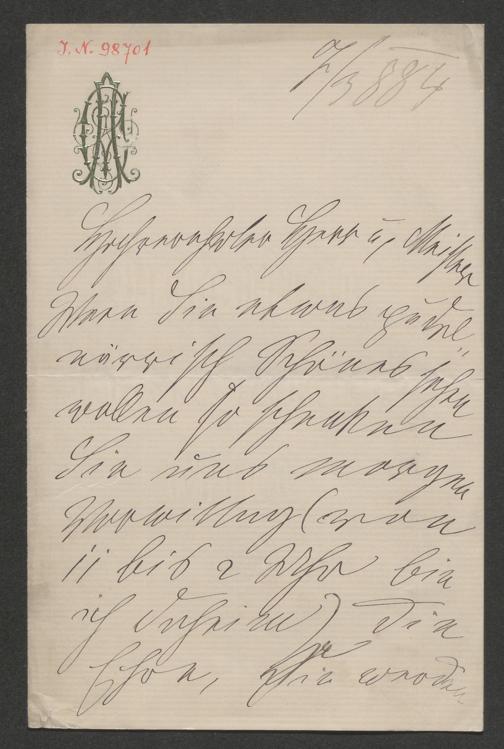 I. N. 98701
7/3 884
Hochverehrter Herr u. Meister
Wenn Sie etwas pudel
närrisch Schönes sehen
wollen so schenken
Sie uns morgen
Vormittag (von
11 bis 2 Uhr bin
ich daheim) die
Ehre, Sie werden